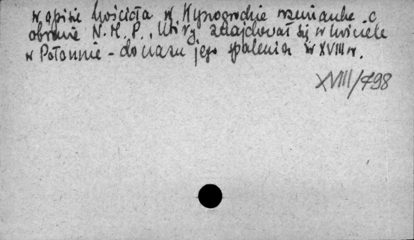 w opisie kościoła w Wynogrodzie wzmianka o
obrazie N.M.P., który znajdował się w kościele
w Połonnie - do czasu jego spalenia w XVIII w.
XVIII/498